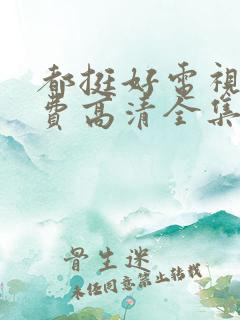 都挺好電視
費高清全集
骨生迷
未经同意禁止转载